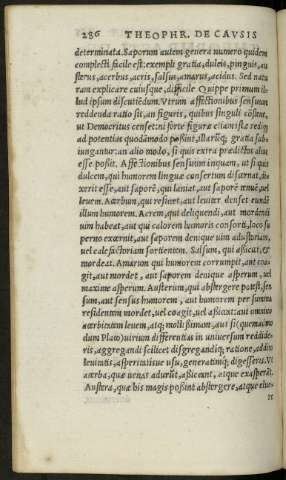 286 THEOPHR. DE CAVSIS
determinata. Saporum autem genera numero quidem
complecti facile est: exempli gratia, dulcis, pinguis, au
sterus, acerbus, acris, salsus, amarus, acidus. Sed natu
ram explicare cuiusque, difficile. Quippe primum il-
lud ipsum discutiēdum. Vtrum affectionibus sensuum
reddenda ratio sit, an figuris, quibus singuli cōstent,
ut Democritus censet: ni forte figuræ etiam istæ redigi
ad potentias quodāmodo possint, illarúq; gratia sub-
iungantur: an alio modo, si quis extra prædictos alius
esse possit. Affectionibus sensuum inquam, ut si quis
dulcem, qui humorem linguæ consertum discernat,
xerit esse, aut saporē, qui leniat, aut saporē tenuē, uel
leuem. Acerbum, qui resicet, aut leuiter denset
illum humorem. Acrem, qui deliquendi, aut mordendi
uim habeat, aut qui calorem humoris consorti, loco su
perno exærnit, aut saporem denique uim adustoriam,
uel calefactoriam sortientem. Salsum, qui assicat, et
mordeat. Amarum qui humorem corrumpit, aut coa-
git, aut mordet, aut saporem denique asperum, uel
maxime asperum. Austerum, qui abstergere potest sen
sum, aut sensus humorem, aut humorem per summa
residentem mordet, uel coagit, uel assicat: aut omnino
acerbitatem leuem, atq; mollissimam, aut sic quemadmo
dum Plato) uirium differentias in uniuersum reddide-
ris, aggregandi scilicet disgregandiq; ratione, addito
leuitatis, asperitatisue usu, generatimq; digesseris. Vt
acerba, quæ uenas adurūt, assicant, atque exasperāt.
Austera, quæ his magis possint abstergere, atque eius-